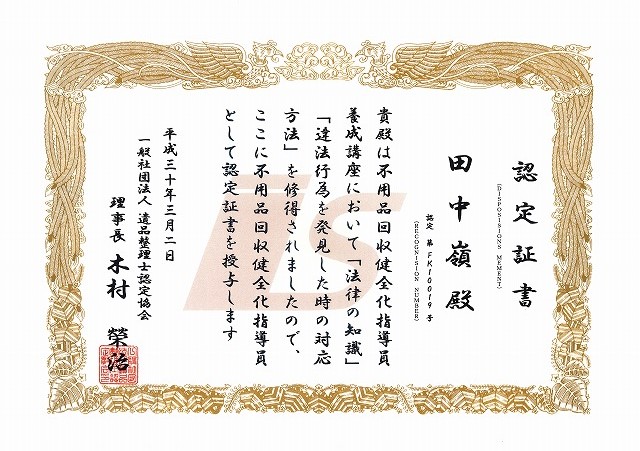 認定証書
(DISPOSISIONS MEMENT)
田中嶺殿
認定 第 FK10019 号
(RECOGNISION NUMBER)
貴殿は不用品回収健全化指導員
養成講座において「法律の知識」
「違法行為を発見した時の対応
方法」を修得されましたので、
ここに不用品回収健全化指導員
として認定証書を授与します
平成三十年三月二日
一般社団法人 遺品整理士認定協会
理事長 木村 榮治